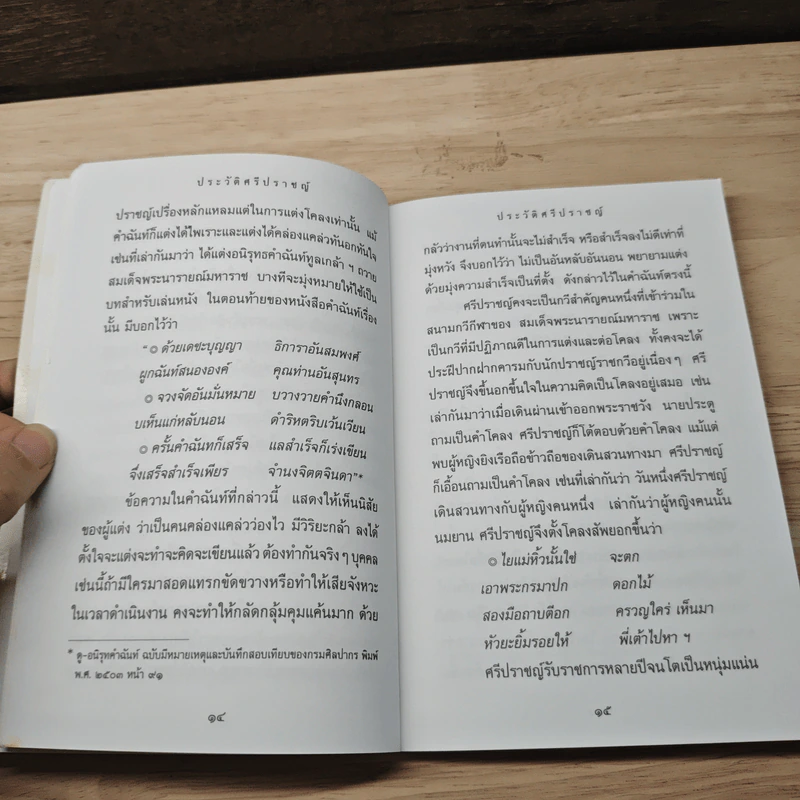 ประวัติศรีปราชญ์
ปราชญ์เปรื่องหลักแหลมแต่ในการแต่งโคลงเท่านั้น แม้
คำฉันท์ก็แต่งได้ไพเราะและแต่งได้คล่องแคล่วทันอกทันใจ
เช่นที่เล่ากันมาว่า ได้แต่งอนิรุทธคำฉันท์ทูลเกล้า ฯ ถวาย
สมเด็จพระนารายณ์มหาราช บางทีจะมุ่งหมายให้ใช้เป็น
บทสำหรับเล่นหนัง ในตอนท้ายของหนังสือคำฉันท์เรื่อง
นั้น มีบอกไว้ว่า
“ ๏ ด้วยเดชะบุญญา ธิการาอันสมพงศ์
ผูกฉันท์สนององค์ คุณท่านอันสุนทร
๏ จวงจัดอันมั่นหมาย บวางวายคำนึงกลอน
บเห็นแก่หลับนอน ดำริหตริบเว้นเวียน
๏ ครั้นคำฉันท์ก็เสร็จ แลสำเร็จก็เร่งเขียน
จึ่งเสร็จสำเร็จเพียร จำนงจิตตจินดา”*
ข้อความในคำฉันท์ที่กล่าวนี้ แสดงให้เห็นนิสัย
ของผู้แต่ง ว่าเป็นคนคล่องแคล่วว่องไว มีวิริยะกล้า ลงได้
ตั้งใจจะแต่งจะทำจะคิดจะเขียนแล้ว ต้องทำกันจริง ๆ บุคคล
เช่นนี้ถ้ามีใครมาสอดแทรกขัดขวางหรือทำให้เสียจังหวะ
ในเวลาดำเนินงาน คงจะทำให้กลัดกลุ้มคุมแค้นมาก ด้วย
* ดู-อนิรุทคำฉันท์ ฉบับมีหมายเหตุและบันทึกสอบเทียบของกรมศิลปากร พิมพ์
พ.ศ. ๒๕๐๓ หน้า ๙๑
๑๔
ประวัติศรีปราชญ์
กลัวว่างานที่ตนทำนั้นจะไม่สำเร็จ หรือสำเร็จลงไม่ดีเท่าที่
มุ่งหวัง จึงบอกไว้ว่า ไม่เป็นอันหลับอันนอน พยายามแต่ง
ด้วยมุ่งความสำเร็จเป็นที่ตั้ง ดังกล่าวไว้ในคำฉันท์ตรงนี้
ศรีปราชญ์คงจะเป็นกวีสำคัญคนหนึ่งที่เข้าร่วมใน
สนามกวีกีฬาของ สมเด็จพระนารายณ์มหาราช เพราะ
เป็นกวีที่มีปฏิภาณดีในการแต่งและต่อโคลง ทั้งคงจะได้
ประฝีปากฝากคารมกับนักปราชญ์ราชกวีอยู่เนื่อง ๆ ศรี
ปราชญ์จึงขึ้นอกขึ้นใจในความคิดเป็นโคลงอยู่เสมอ เช่น
เล่ากันมาว่าเมื่อเดินผ่านเข้าออกพระราชวัง นายประตู
ถามเป็นคำโคลง ศรีปราชญ์ก็โต้ตอบด้วยคำโคลง แม้แต่
พบผู้หญิงยิงเรือถือข้าวถือของเดินสวนทางมา ศรีปราชญ์
ก็เอื้อนถามเป็นคำโคลง เช่นที่เล่ากันว่า วันหนึ่งศรีปราชญ์
เดินสวนทางกับผู้หญิงคนหนึ่ง เล่ากันว่าผู้หญิงคนนั้น
นมยาน ศรีปราชญ์จึงตั้งโคลงสัพยอกขึ้นว่า
๏ ไยแม่หิ้วนั้นใช่ จะตก
เอาพระกรมาปก ดอกไม้
สองมือถาบตีอก ครวญใคร่ เห็นมา
หัวยะยิ้มรอยให้ พี่เต้าไปหา ฯ
ศรีปราชญ์รับราชการหลายปีจนโตเป็นหนุ่มแน่น
๑๕